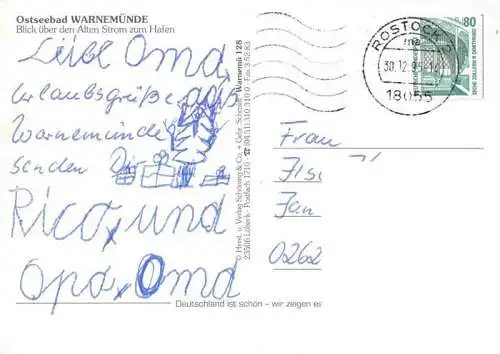 Ostseebad WARNEMÜNDE
Blick über den Alten Strom zum Hafen
Liebe Oma,
Urlaubsgrüße aus
Warnemünde
senden Dir
Rico, und
Opa, Oma
© Herst. u. Verlag Schöning & Co. + Gebr. Schmidt Warnemü 128
23506 Lübeck · Postfach 1710 · ☎ (04 51) 310 310
Deutschland ist schön – wir zeigen es
ROSTOCK
30.12.
18055
80
DEUTSCHE BUNDESPOST
Frau
Jan